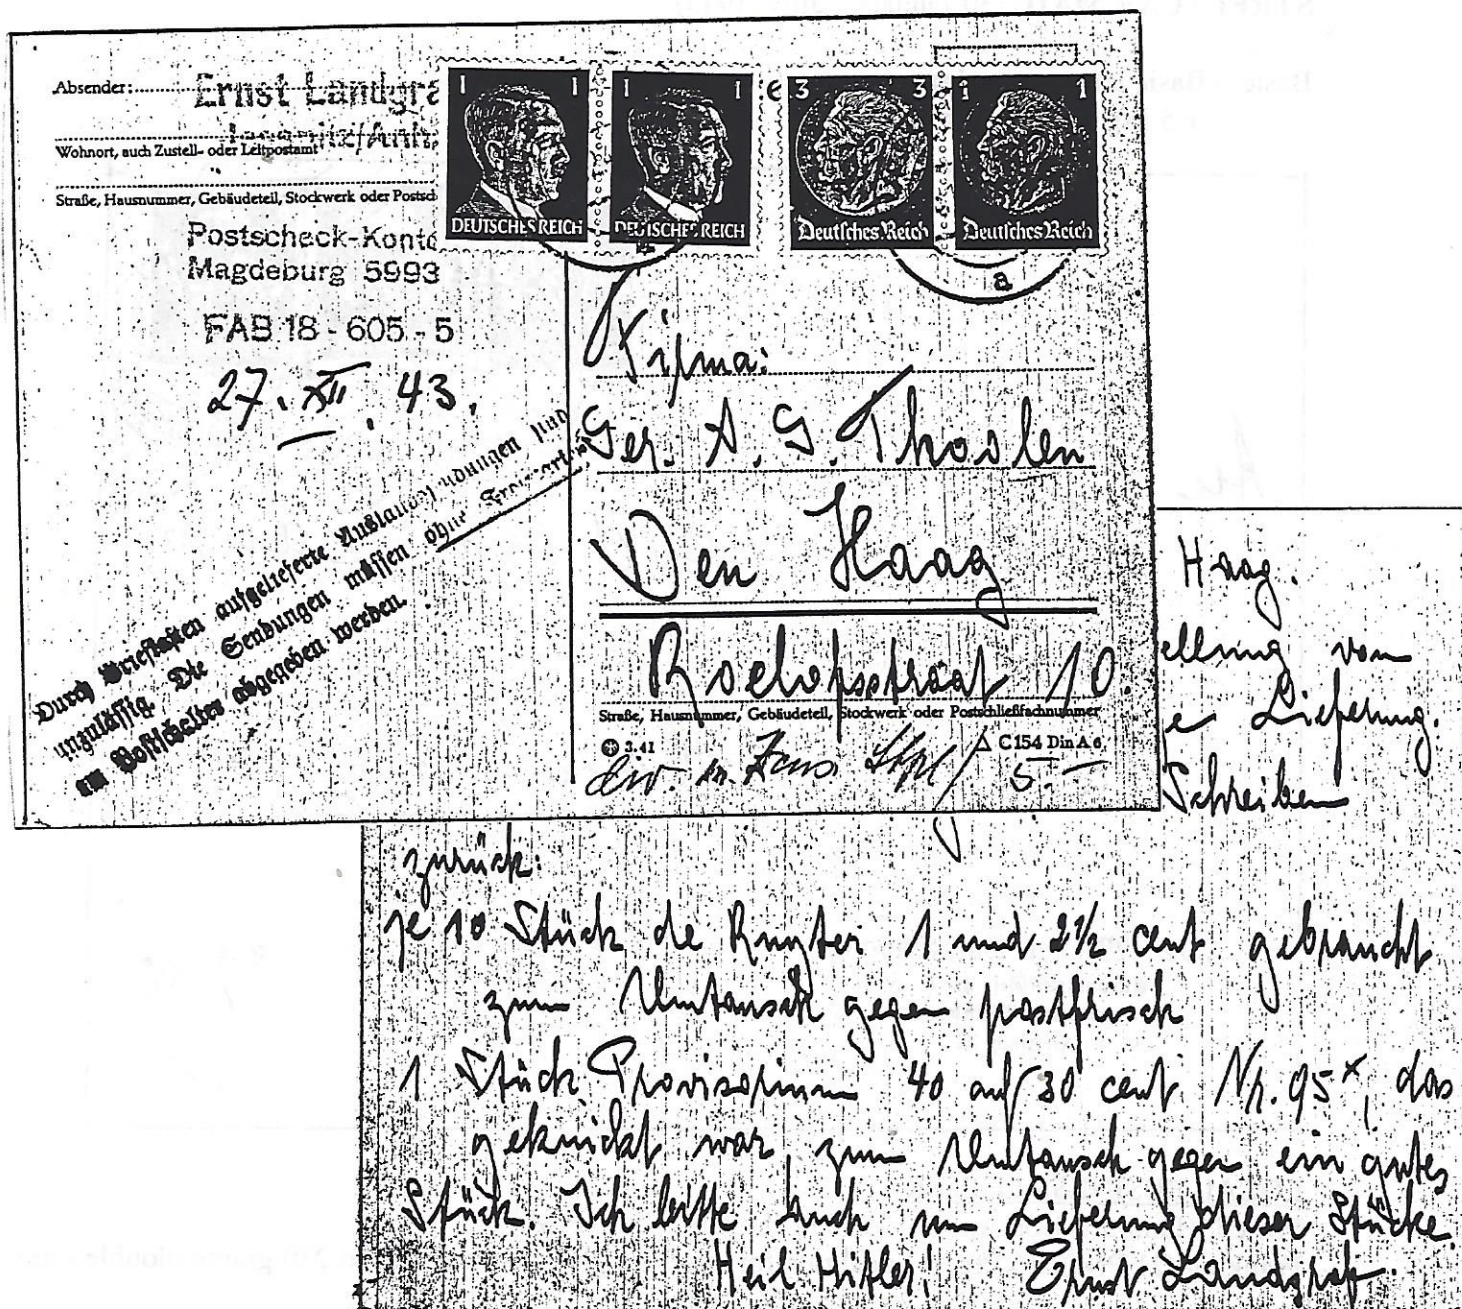 Absender:
Ernst Landgra
Wohnort, auch Zustell- oder Leitpostamt
Straße, Hausnummer, Gebäudeteil, Stockwerk oder Postsch
Postscheck-Konto
Magdeburg 5993
FAB 18 - 605 - 5
27. XII. 43.
Durch Briefkasten aufgelieferte Auslandssendungen sind
unzulässig. Die Sendungen müssen ohne
am Postschalter abgegeben werden.
1 1
DEUTSCHES REICH
1 1
DEUTSCHES REICH
3 3
Deutsches Reich
1 1
Deutsches Reich
a
Firma:
Ger. A. G. Thoolen
Den Haag
Roelofsstraat 10.
Straße, Hausnummer, Gebäudeteil, Stockwerk oder Postschließfachnummer
3.41
C 154 Din A 6
5.—
Haag.
ellung vom
e Lieferung.
Schreiben
zurück:
je 10 Stück de Ruyter 1 und 2½ cent gebraucht
zum Umtausch gegen postfrisch
1 Stück Provisorium 40 auf 30 cent Nr. 95 x, das
geknickt war, zum Umtausch gegen ein gutes
Stück. Ich bitte auch um Lieferung dieser Stücke.
Heil Hitler! Ernst Landgraf.